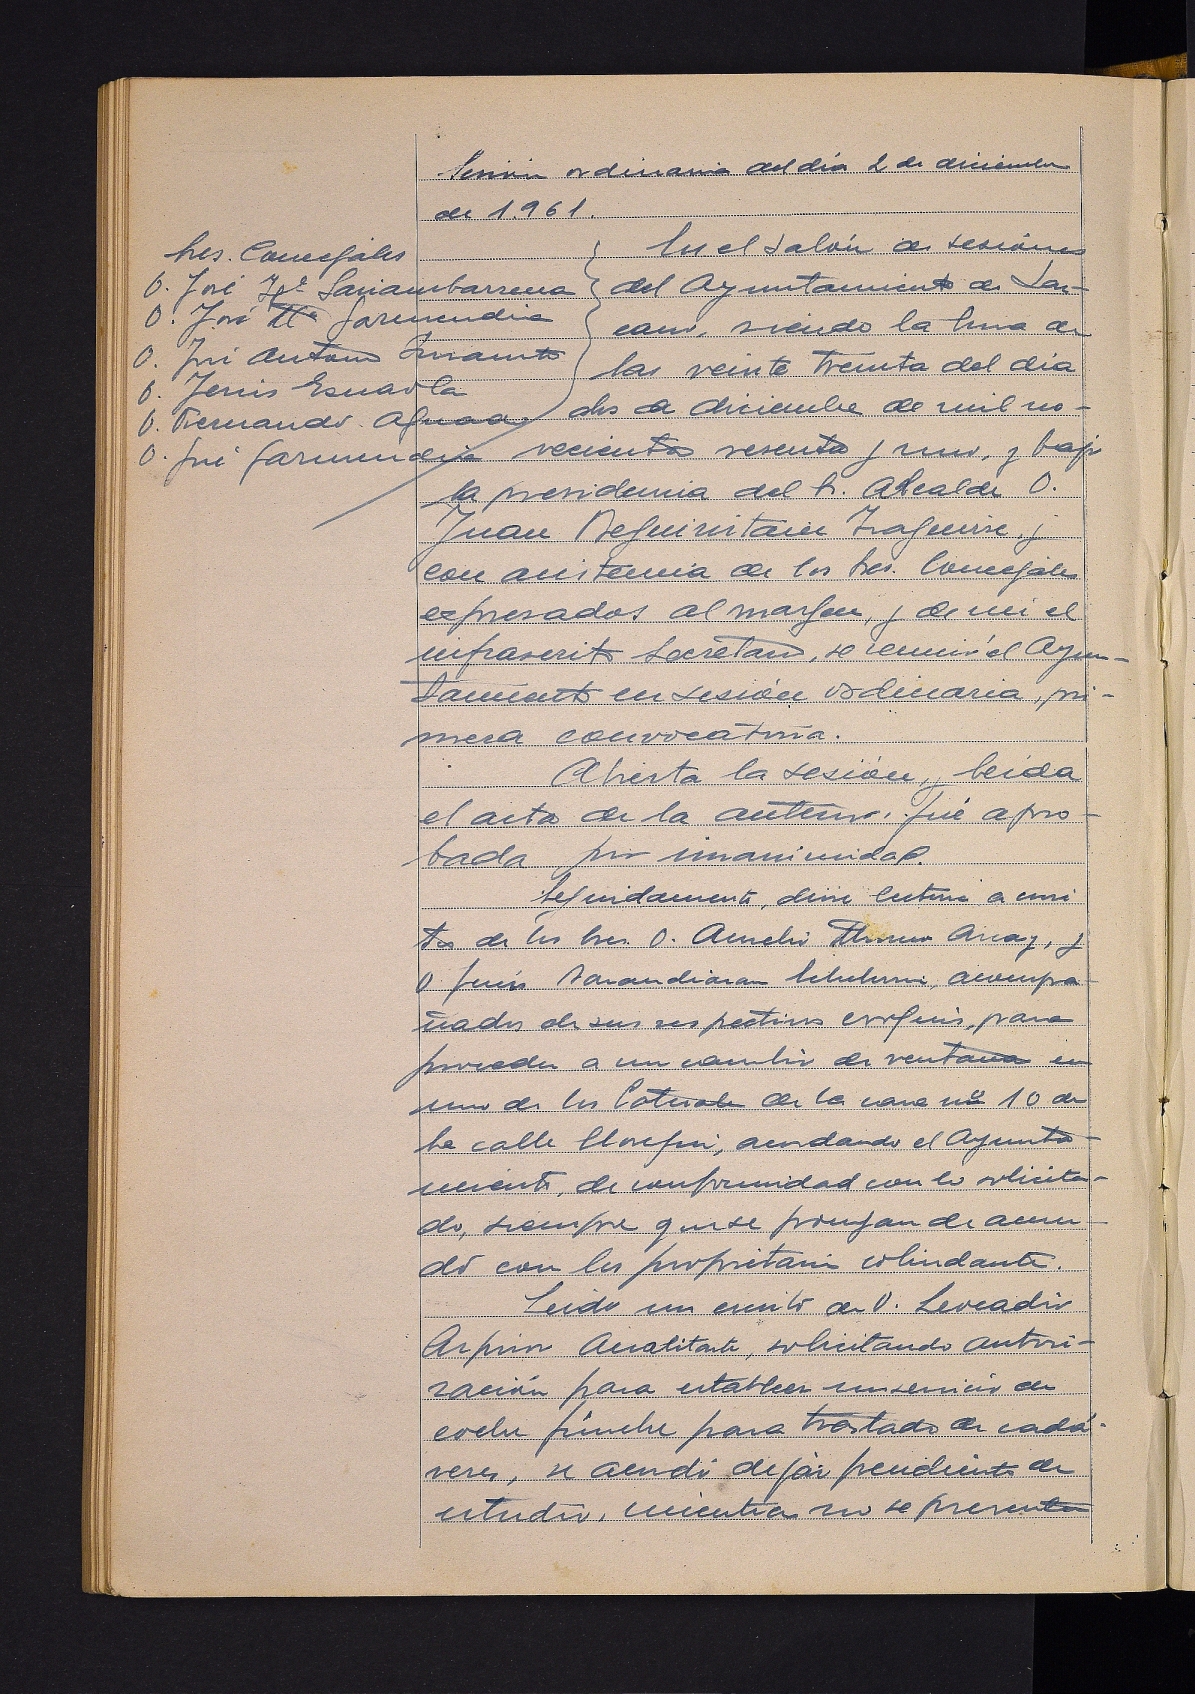 Sesión ordinaria del día 2 de diciembre
de 1.961.
Sres. Concejales
D. José Igº Sariambarrena
D. José Mª Garmendia
D. José Antonio
D. Jesús Esnaola
D. Fernando
D. José Garmendia
En el Salón de sesiones
del Ayuntamiento de Laz-
cano, siendo la hora de
las veinte treinta del día
dos de diciembre de mil no-
vecientos sesenta y uno, y bajo
la presidencia del Sr. Alcalde D.
Juan Iraguirre, y
con asistencia de los Sres. Concejales
expresados al margen, y de mi el
infrascrito Secretario, se reunió el Ayun-
tamiento en sesión ordinaria, pri-
mera convocatoria.
Abierta la sesión, y leída
el acta de la anterior, fué apro-
bada por unanimidad.
Seguidamente, dióse lectura a escri
tos de los Sres. D. Aurelio Array, y
D. acompa-
ñados de sus respectivos croquis, para
proceder a un cambio de ventana en
uno de los laterales de la casa nº 10 de
la calle Elosegui, acordando el Ayunta-
miento, de conformidad con lo solicita-
do, siempre que se pongan de acuer-
do con los propietarios colindantes.
Leido un escrito de D. Leocadio
solicitando autori-
zación para establecer un servicio de
coche fúnebre para traslado de cadá-
veres, se acordó dejar pendiente de
estudio, mientras no se presenten